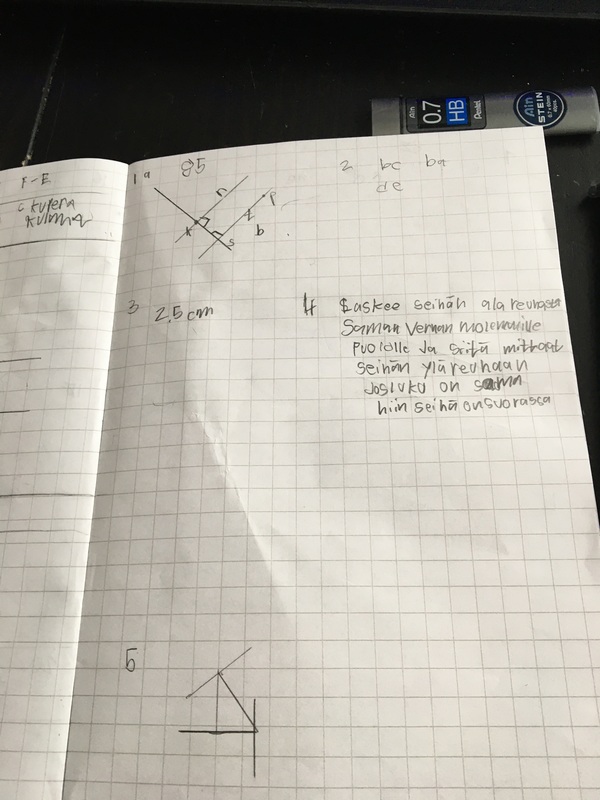 Ain
0.7
HB
Pentel
Ain
STEIN
F-E
kulma
1 a 85
2 bc ba
de
n
p
k
s
b
3 2,5 cm
4 Laskee seinän alareunasta
Saman Verran molemmille
puolille Ja Siitä mittaat
seinän yläreunaan
Josluku on sama
niin seinä onsuorassa
5